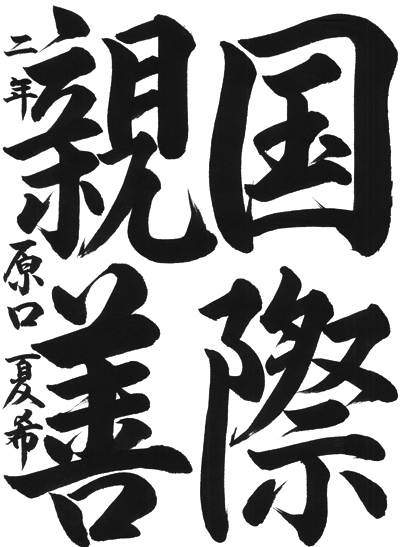 国際
親善
二年 原口 夏希